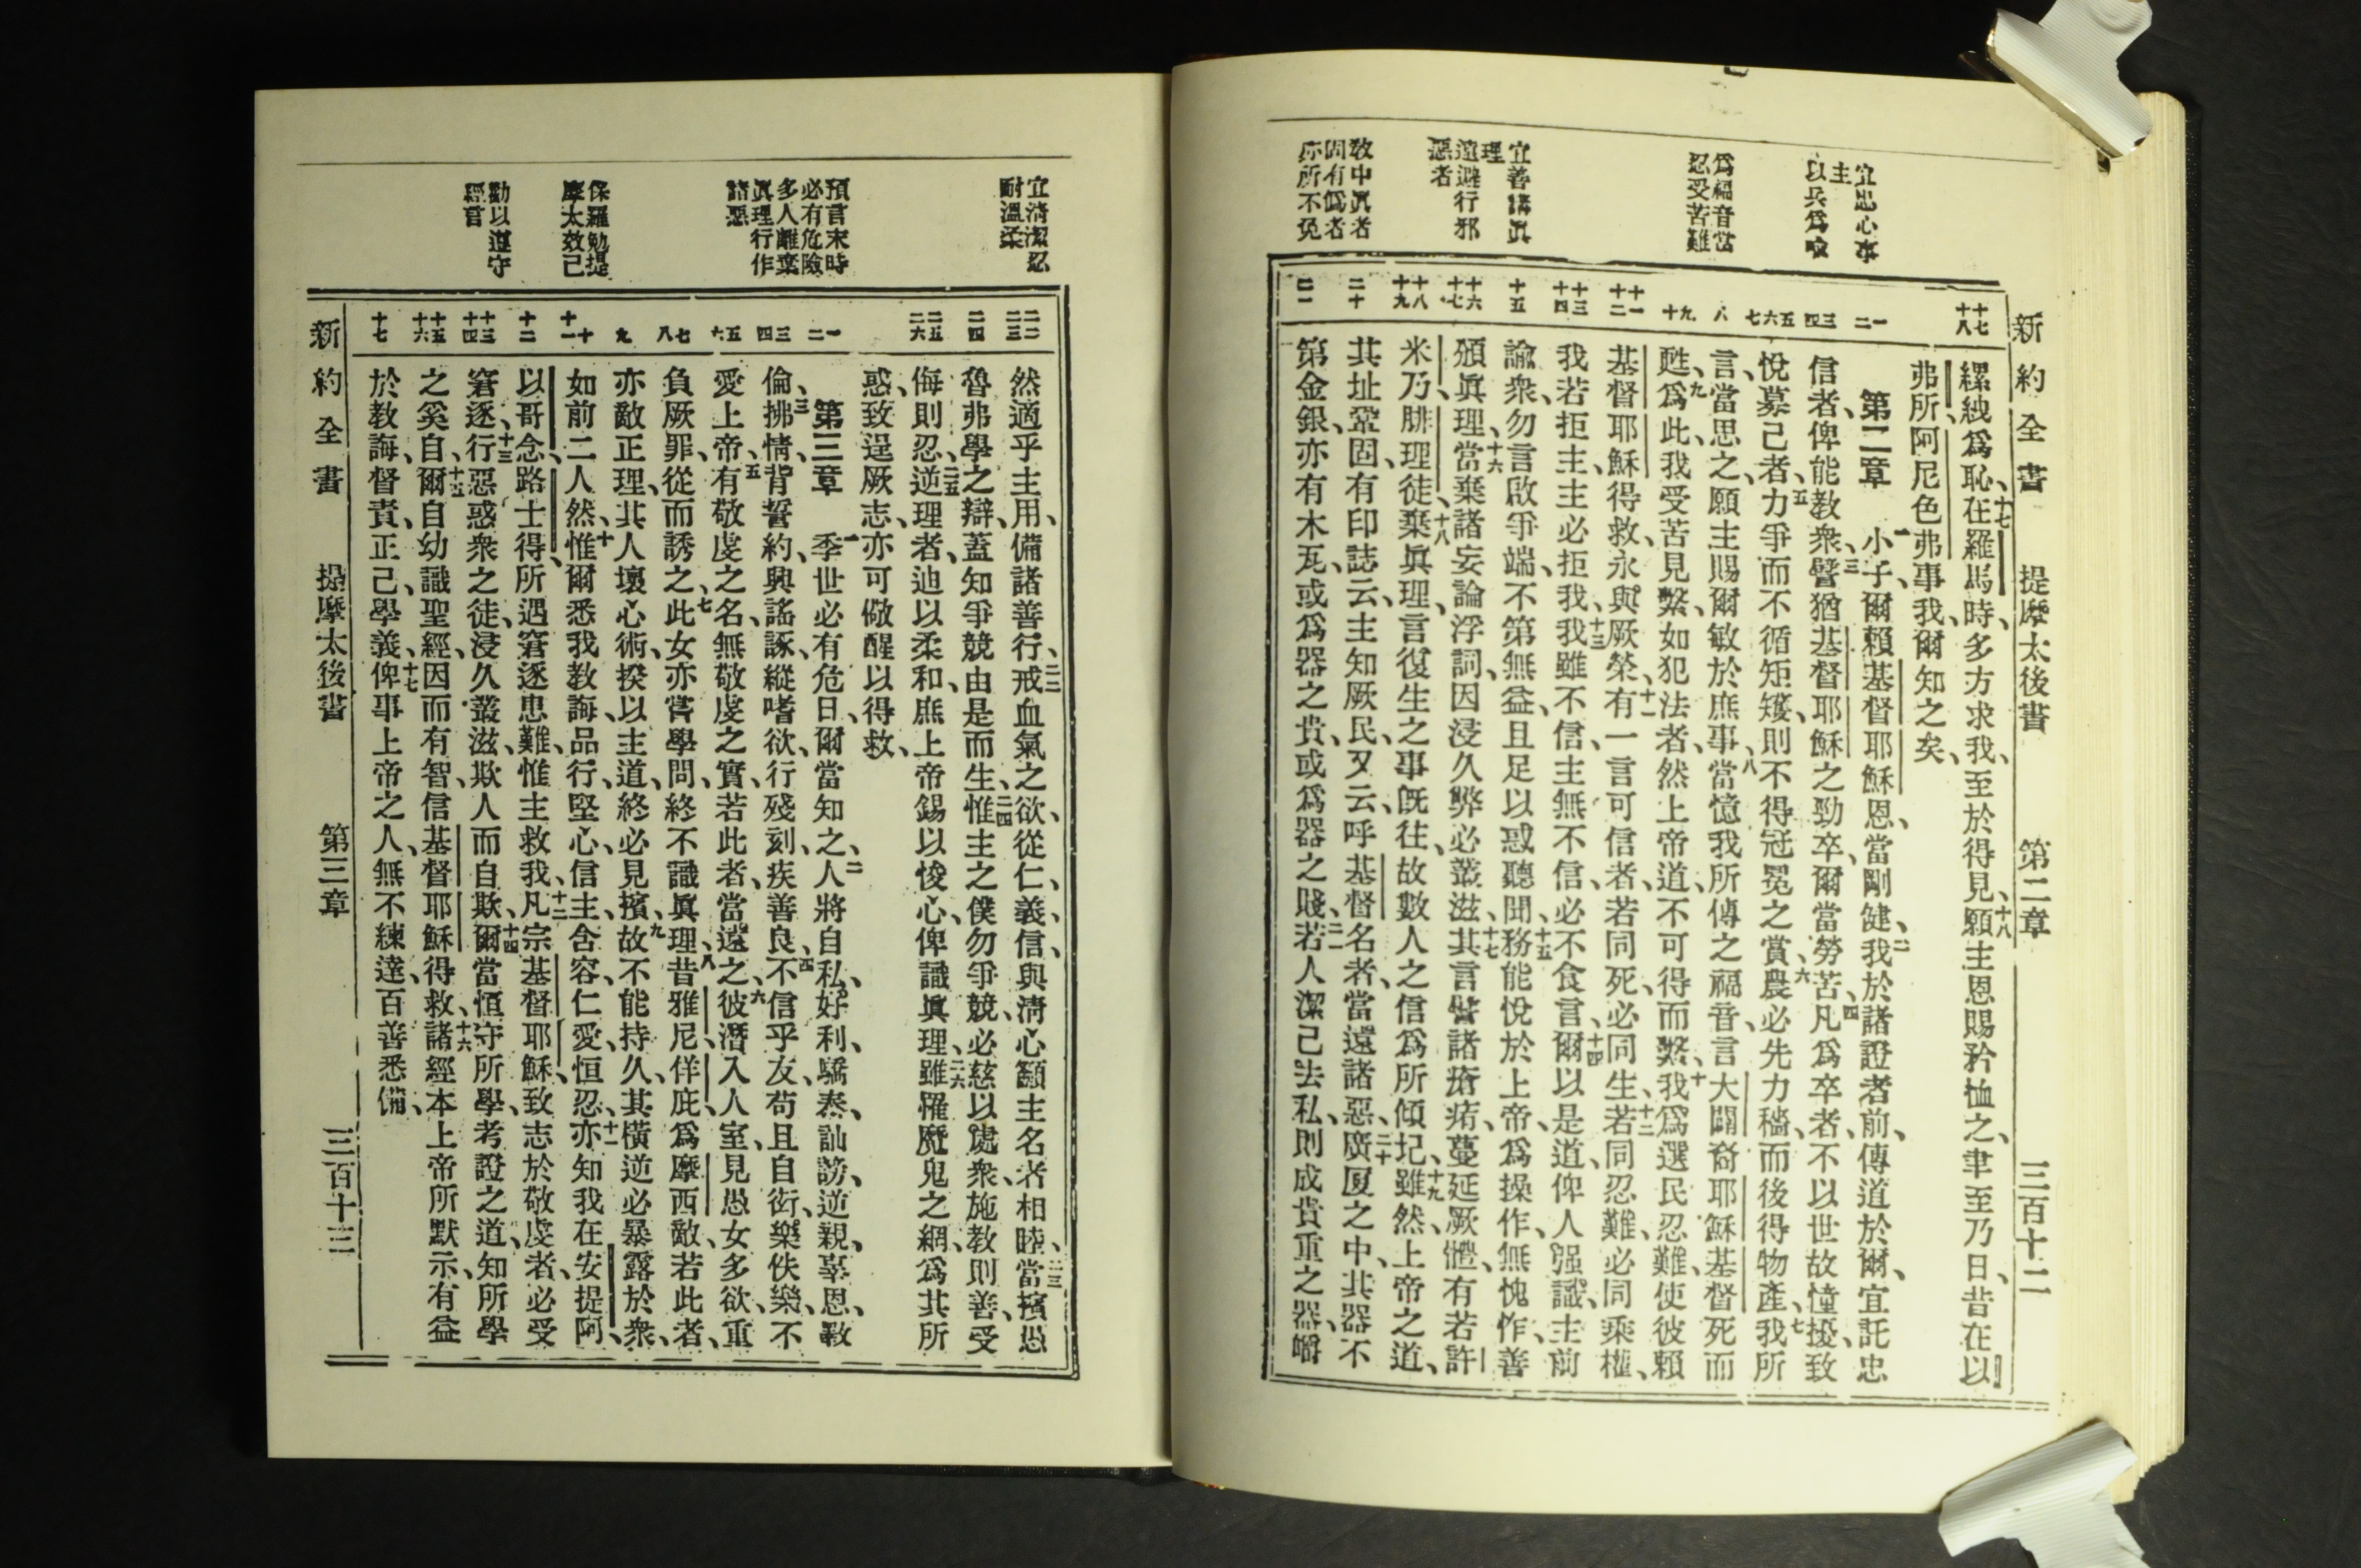 新約全書 提摩太後書 第二章 三百十二
宜忠心事
主
以兵爲喩
爲福音當
忍受苦難
宜善講眞
理
遠避行邪
惡者
敎中眞者
固有僞者
亦所不免
十七
十八
一
二
三
四
五
六
七
八
九
十
十一
十二
十三
十四
十五
十六
十七
十八
十九
二十
二一
縲絏爲恥、十七在羅馬時、多方求我、至於得見、十八願主恩賜矜恤之、聿至乃日、昔在以
弗所、阿尼色弗事我、爾知之矣、
第二章 一小子、爾賴基督耶穌恩、當剛健、二我於諸證者前、傳道於爾、宜託忠
信者、俾能教衆、三譬猶基督耶穌之勁卒、爾當勞苦、四凡爲卒者、不以世故憧擾、致
悅募己者、五力爭而不循矩矱、則不得冠冕之賞、六農必先力穡、而後得物產、七我所
言、當思之、願主賜爾敏於庶事、八當憶我所傳之福音、言大闢裔耶穌基督死而
甦、九爲此、我受苦見繫、如犯法者、然上帝道、不可得而繫、十我爲選民忍難、使彼賴
基督耶穌得救、永與厥榮、十一有一言可信者、若同死、必同生、十二若同忍難、必同乘權、
我若拒主、主必拒我、十三我雖不信、主無不信、必不食言、十四爾以是道、俾人强識、主前
諭衆、勿言啟爭端、不第無益、且足以惑聽聞、十五務能悅於上帝、爲操作、無愧怍、善
頒眞理、十六當棄諸妄論浮詞、因浸久弊必叢滋、十七其言譬諸瘡疥、蔓延厥體、有若許
米乃、腓理徒、十八棄眞理、言復生之事旣往、故數人之信爲所傾圮、十九雖然、上帝之道、
其址鞏固、有印誌云、主知厥民、又云、呼基督名者、當遠諸惡、二十廣厦之中、其器不
第金銀、亦有木瓦、或爲器之貴、或爲器之賤、二一若人潔己去私、則成貴重之器、嚼
宜淸潔忍
耐溫柔
預言末時
必有危險
多人離棄
眞理行作
諸惡
保羅勉提
摩太效己
勸以遵守
經言
二二
二三
二四
二五
二六
一
二
三
四
五
六
七
八
九
十
十一
十二
十三
十四
十五
十六
十七
然適乎主用、備諸善行、二二戒血氣之欲、從仁、義、信、與淸心籲主名者相睦、二三當擯愚
魯弗學之辯、蓋知爭競由是而生、二四惟主之僕勿爭競、必慈以處衆、施教則善、受
侮則忍、二五逆理者、迪以柔和、庶上帝錫以悛心、俾識眞理、二六雖罹魔鬼之網、爲其所
惑、致逞厥志、亦可儆醒以得救、
第三章 一季世必有危日、爾當知之、二人將自私、好利、驕泰、訕謗、逆親、辜恩、斁
倫、三拂情、背誓約、興謠諑、縱嗜欲、行殘刻、疾善良、四不信乎友、苟且自衒、樂佚樂、不
愛上帝、五有敬虔之名、無敬虔之實、若此者、當遠之、六彼潛入人室、見愚女多欲、重
負厥罪、從而誘之、七此女亦嘗學問、終不識眞理、八昔雅尼、佯庇、爲摩西敵、若此者、
亦敵正理、其人壞心術、揆以主道、終必見擯、九故不能持久、其橫逆必暴露於衆、
如前二人然、十惟爾悉我教誨、品行、堅心、信主、含容、仁愛、恒忍、十一亦知我在安提阿、
以哥念、路士得、所遇窘逐患難、惟主救我、十二凡宗基督耶穌、致志於敬虔者、必受
窘逐、十三行惡惑衆之徒、浸久叢滋、欺人而自欺、十四爾當恒守所學、考證之道、知所學
之奚自、十五爾自幼識聖經、因而有智、信基督耶穌得救、十六諸經本上帝所默示、有益
於教誨、督責、正己、學義、十七俾事上帝之人、無不練達、百善悉備、
新約全書 提摩太後書 第三章 三百十三